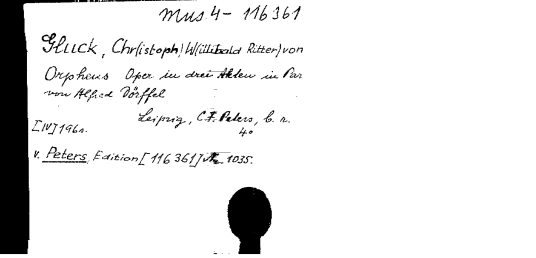 Mus 4 - 116361
Gluck, Chr(istoph) W(illibald Ritter) von
Orpheus Oper in drei Akten in Par
von Alfred Dörffel
Leipzig, C.F. Peters, b. r.
4°
[IV] 196 r.
v. Peters, Edition [116 361] No. 1035.